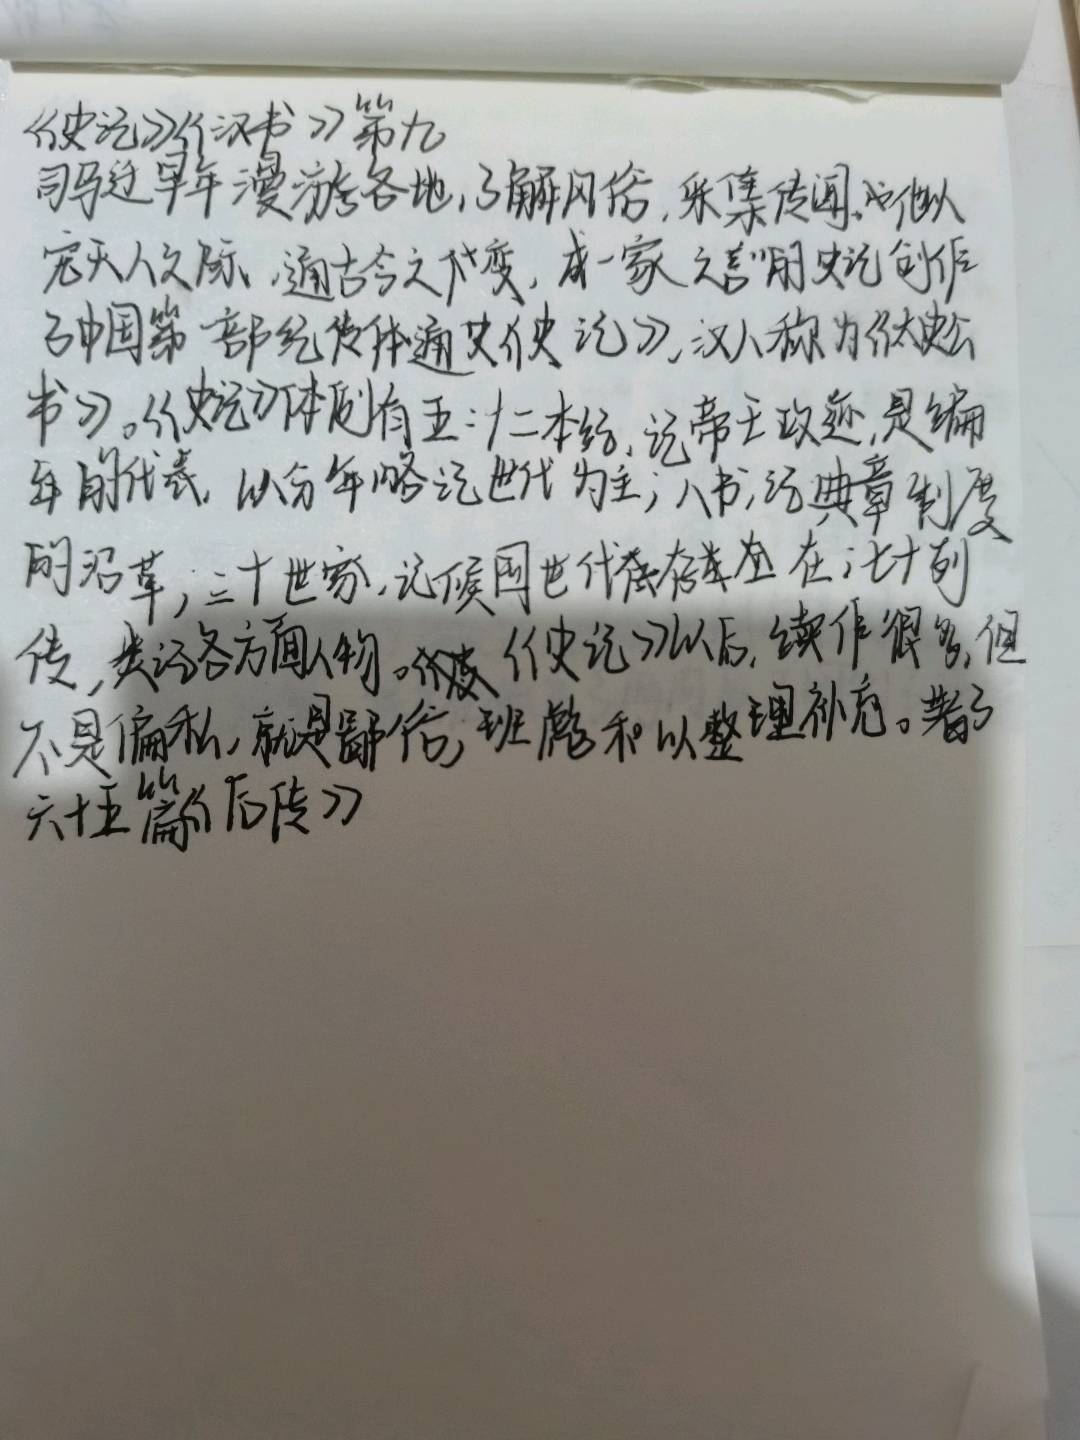 《史记》《汉书》第九
司马迁早年漫游各地,了解风俗,采集传闻。他以
究天人之际,通古今之变,成一家之言"的史记创作
了中国第一部纪传体通史《史记》,汉人称为《太史公
书》。《史记》体例有五:十二本纪,记帝王政迹,是编
年的代表,以分年略记世代为主;八书,记典章制度
的沿革;三十世家,记候国世代存在;七十列
传,类记各方面人物。《史记》以后,续作很多,但
不是偏私,就是鄙俗,班彪和以整理补充。著了
六十五篇《后传》